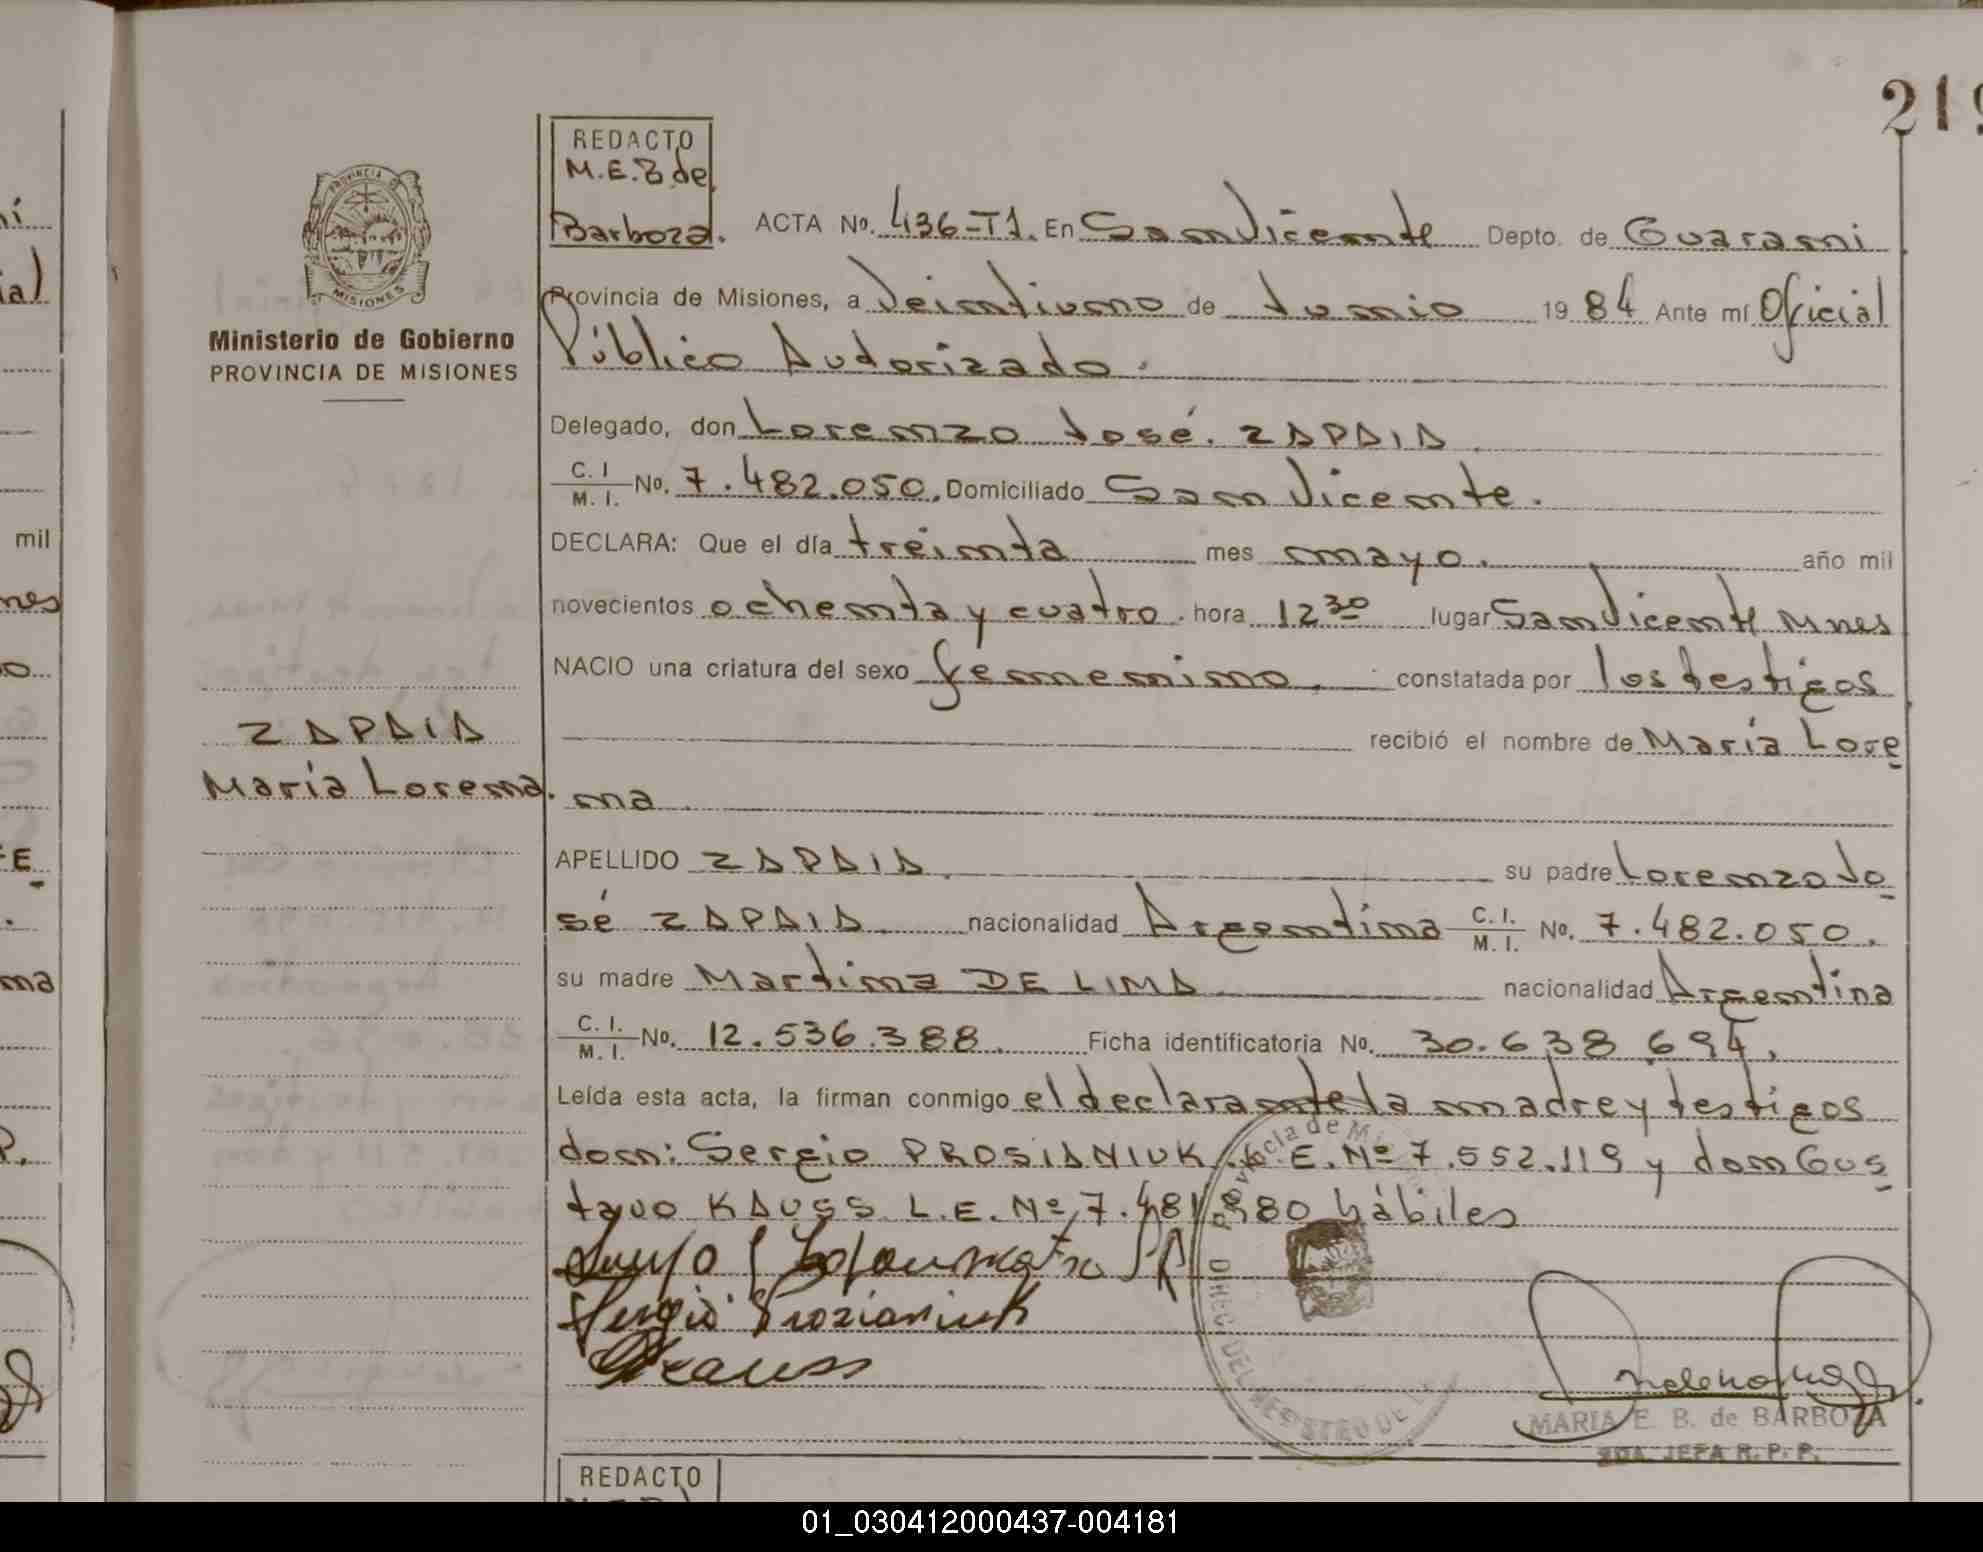 219
REDACTO
M.E.B de
Barboza.
PROVINCIA DE
MISIONES
Ministerio de Gobierno
PROVINCIA DE MISIONES
ACTA No. 436-T1. En San Vicente Depto. de Guarani
Provincia de Misiones, a Veintiuno de Junio 19 84 Ante mí Oficial
Público Autorizado.
Delegado, don Lorenzo José. ZAPAIA
C. I. M. I. No. 7.482.050. Domiciliado San Vicente.
DECLARA: Que el día treinta mes mayo. año mil
novecientos ochenta y cuatro. hora 12 30 lugar San Vicente Mnes
NACIO una criatura del sexo femenino. constatada por los testigos
recibió el nombre de María Lore
na.
ZAPAIA
María Lorena.
APELLIDO ZAPAIA. su padre Lorenzo Jo
sé ZAPAIA. nacionalidad Argentina C. I. M. I. No. 7.482.050.
su madre Martina DE LIMA nacionalidad Argentina
C. I. M. I. No. 12.536.388. Ficha identificatoria No. 30.638.694.
Leída esta acta, la firman conmigo el declarante la madre y testigos
don: Sergio PROSIANIUK L.E. Nº 7.552.119 y don Gus
tavo KAUSS L.E. Nº 7.481.980 hábiles
Sergio Prozianiuk
Provincia de Mi
DIREC. DEL REGISTRO DE
MARIA E. B. de BARBOZA
2DA. JEFA R. P. P.
REDACTO
mil
mil
nes
ma
01_030412000437-004181